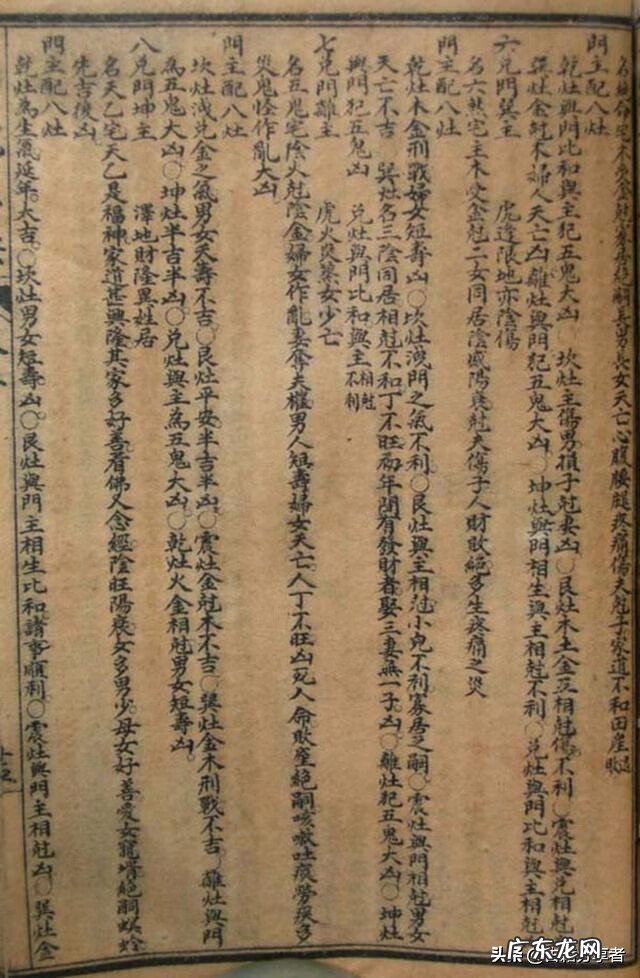 名絶命宅木受金尅家易絶嗣長男長女夭亡心腹腰腿疼痛傷夫尅子家道不和田產退敗
門主配八灶
乾灶與門比和與主犯五鬼大凶 坎灶主傷男損子尅妻凶〇艮灶木土金互相尅傷不利〇震灶與兑相尅凶
巽灶金尅木婦人夭亡凶〇離灶與門犯五鬼大凶〇坤灶與門相生與主相尅不利〇兑灶與門比和與主相尅
六兑門巽主 虎逢限地亦陰傷
名六煞宅主木受金尅二女同居陰盛陽衰尅夫傷子人財敗絶多生疼痛之災
門主配八灶
乾灶木金刑戰婦女短壽凶〇坎灶洩門之氣不利〇艮灶與主相尅小兒不利寡居乏嗣〇震灶與門相尅男女
夭亡不吉 巽灶名三陰同居相尅不和丁不旺初年間有發財者娶三妻無一子凶〇離灶犯五鬼大凶〇坤灶
與門犯五鬼凶 兑灶與門比和與主相尅不利
七兑門離主 虎火炎蒸女少亡
名五鬼宅陰火尅陰金婦女作亂妻奪夫權男人短壽婦女夭亡人丁不旺凶死人命敗產絶嗣咳嗽吐痰勞疾多
災鬼怪作亂大凶
門主配八灶
坎灶洩兑金之氣男女夭壽不吉〇艮灶平安半吉半凶〇震灶金尅木不吉〇巽灶金木刑戰不吉 離灶與門
為五鬼大凶〇坤灶半吉半凶〇兑灶與主為五鬼大凶〇乾灶火金相尅男女短壽凶
八兑門坤主 澤地財隆異姓居
名天乙宅天乙是福神家道甚興隆其家多好善看佛又念經陰旺陽衰女多男少母女好善愛女寵壻絶嗣螟蛉
先吉後凶
門主配八灶
乾灶為生氣延年大吉〇坎灶男女短壽凶〇艮灶與門主相生比和諸事順利〇震灶與門主相尅凶〇巽灶金
头条 @古籍分享者
广东龙网